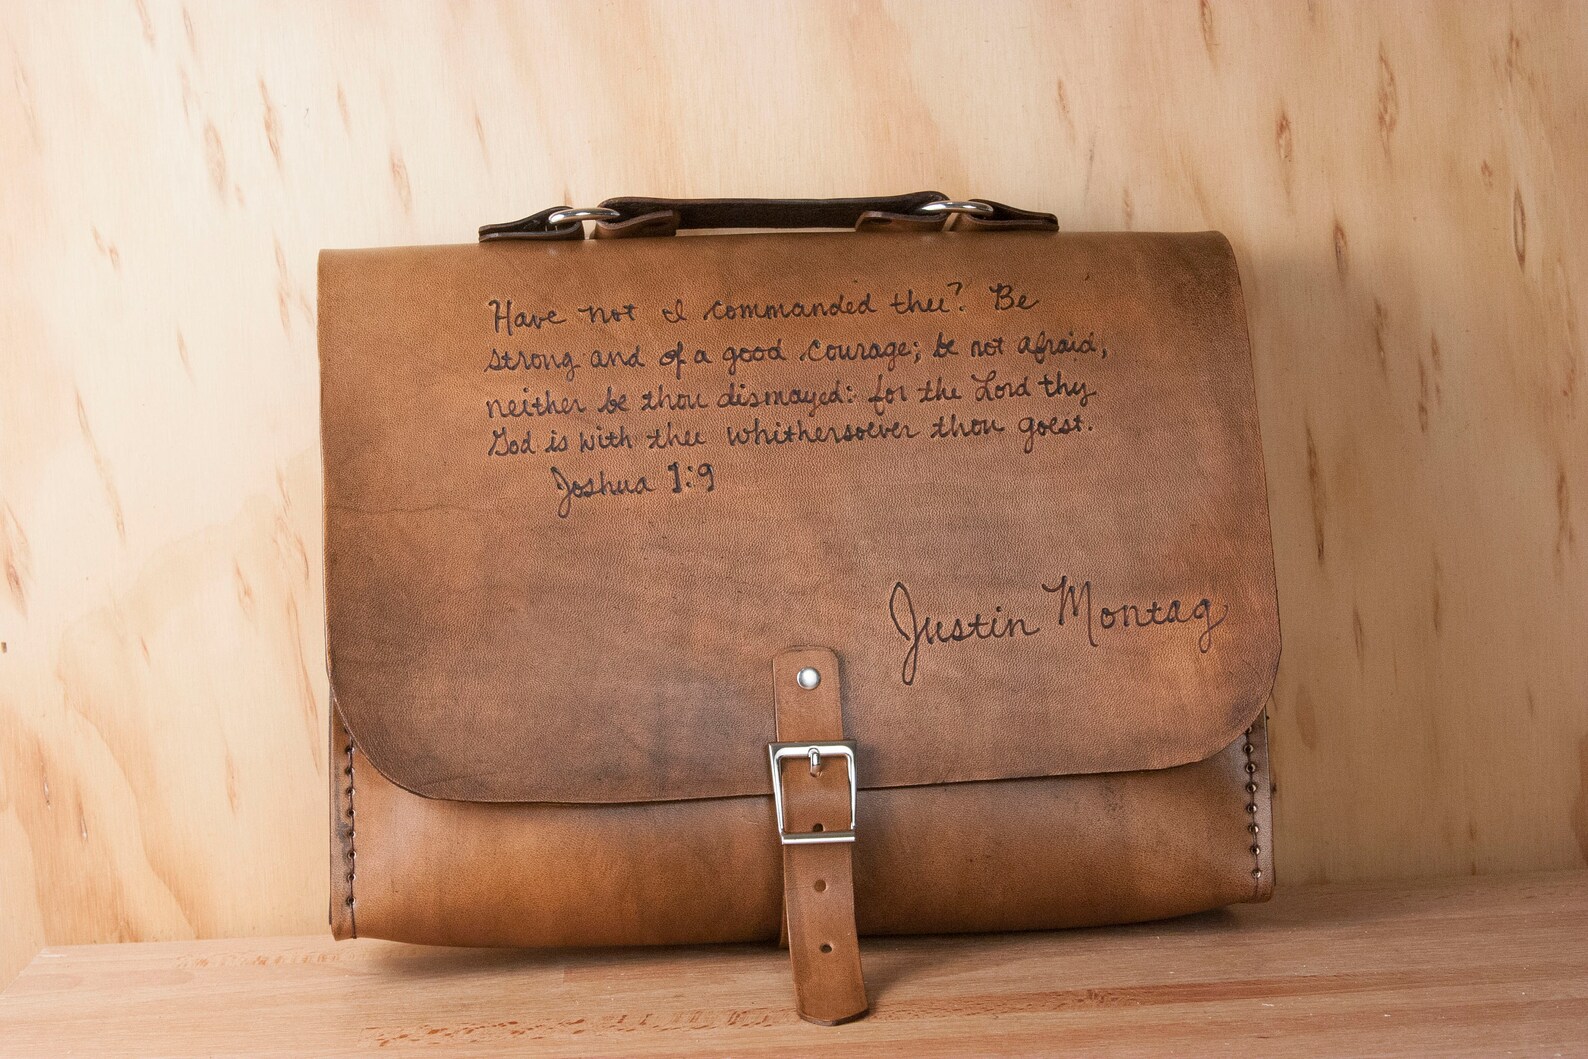 Have not I commanded thee? Be
strong and of a good courage; be not afraid,
neither be thou dismayed: for the Lord thy
God is with thee whithersoever thou goest.
Joshua 1:9
Justin Montag